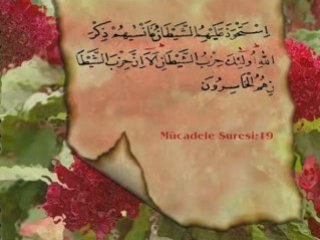 اِسْتَحْوَذَ عَلَيْهِمُ الشَّيْطَانُ فَاَنْسٰيهُمْ ذِكْرَ
اللّٰهِ اُولٰئِكَ حِزْبُ الشَّيْطَانِ اَلَا اِنَّ حِزْبَ الشَّيْطَا
نِ هُمُ الْخَاسِرُونَ
Mücadele Suresi:19